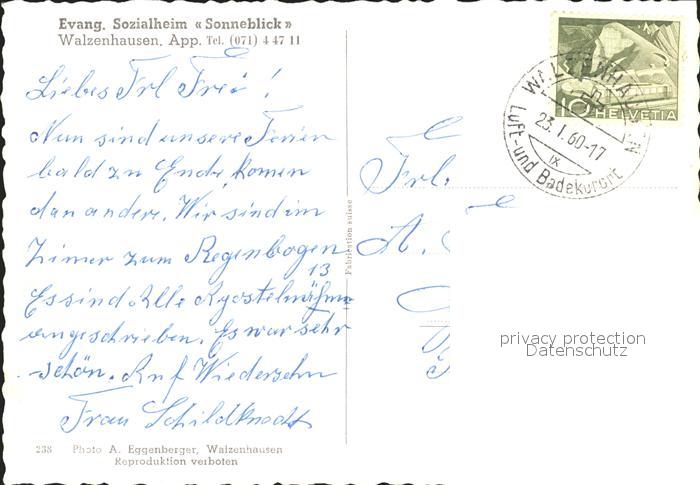 Evang. Sozialheim «Sonneblick»
Walzenhausen, App. Tel. (071) 4 47 11
Liebes Frl Frei !
Nun sind unsere Ferien
bald zu Ende, komen
dan andere. Wir sind im
Zimer zum Regenbogen
13
Es sind Alle
angeschrieben. Es war sehr
schön. Auf Wiedersehn
Frau Schildknecht
238 Photo A. Eggenberger, Walzenhausen
Reproduktion verboten
Fabrication suisse
Frl.
A.
10 HELVETIA
WALZENHAUSEN
23.1.60-17
IX
Luft- und Badekurort
privacy protection
Datenschutz